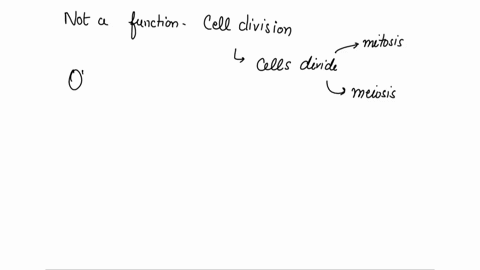 Not a function - Cell division
↳ Cells divide → mitosis
→ meiosis
O'